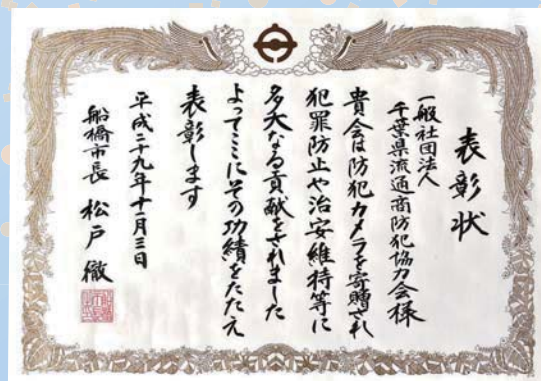 表彰状
一般社団法人
千葉県流通商防犯協力会様
貴会は防犯カメラを寄贈され
犯罪防止や治安維持等に
多大なる貢献をされました
よってここにその功績をたたえ
表彰します
平成二十九年十一月三日
船橋市長 松戸 徹